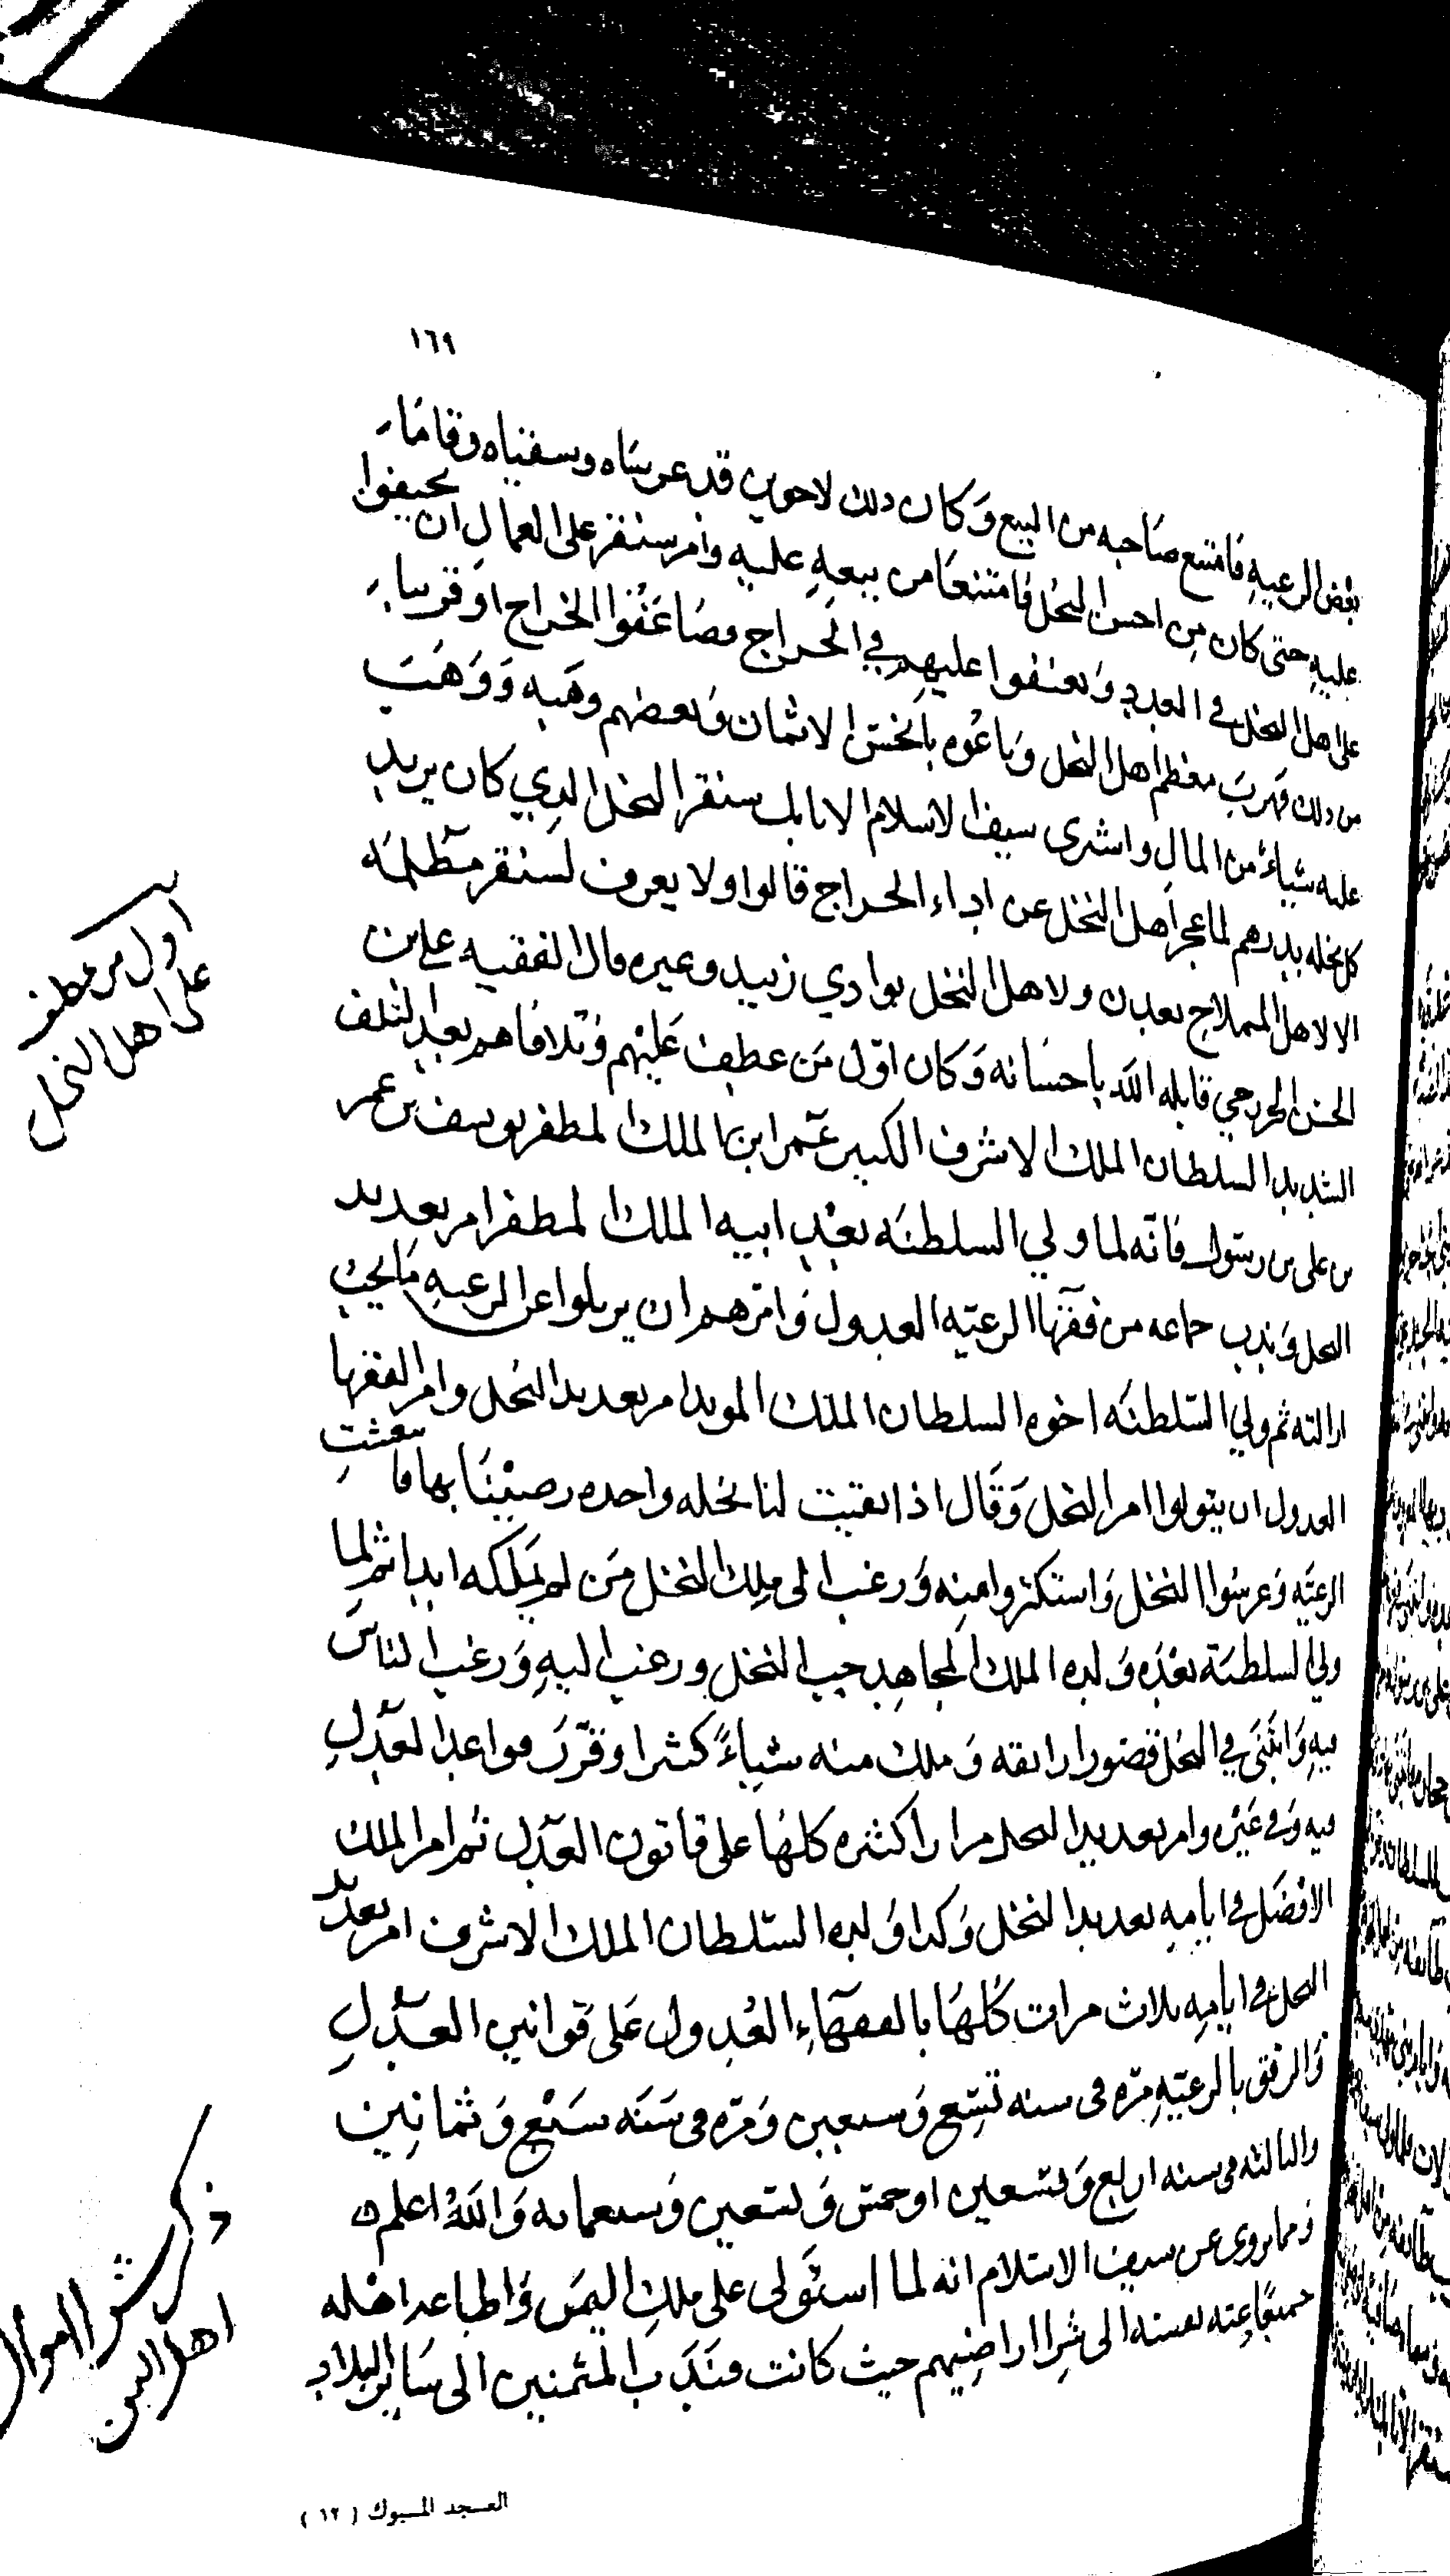 ١٦٩
بعض الرعيه فامتنع صاحبه من البيع وكان دلك لاحوين قد عرساه وسقياه وقاما
عليه حتى كان من احسن النخل فامتنعا من بيعه عليه وامر سنقر على العمال ان يحيفوا
على اهل النخل في العدد ويعنفوا عليهم في الخراج فضاعفوا الخراج او قريبا
من دلك فهرب معظم اهل النخل وباعوه بابخس الاثمان وبعضهم وهبه ووهب
عليه شياء من المال واشترى سيف الاسلام الاتابك سنقر النخل الدي كان يريد
كل نخله بدرهم لما عجز أهل النخل عن اداء الخراج قالوا ولا يعرف لسنقر مظلمه
الا لاهل المملاح بعدن ولاهل النخل بوادي زبيد وغيره قال الفقيه علي بن
الحسن الخزرجي قابله الله باحسانه وكان اول من عطف عليهم وتلافاهم بعد التلف
الشديد السلطان الملك الاشرف الكبير عمر ابن الملك المظفر يوسف بن عمر
بن على بن رسول فانه لما ولي السلطنه بعد ابيه الملك المظفر امر بعديد
النخل وندب جماعه من فقهاا الرعيه العدول وامرهم ان يزيلوا عن الرعيه مايجب
ازالته ثم ولي السلطنه اخوه السلطان الملك المويد امر بعديد النخل وامر الفقها
العدول ان يتولوا امر النخل وقال اذا بقيت لنا نخله واحده رضينا بها فانتعشت
الرعيه وغرسوا النخل واستكثروا منه ورغب الى ملك النخل من لم يملكه ابدا ثم لما
ولي السلطنة بعده ولده الملك المجاهد حب النخل ورغب اليه ورغب الناس
فيه وابتنى في النخل قصورا رائقه وملك منه شياءً كثيرا وقرر قواعد العدل
فيه وفي غيره وامر بعديد النخل مرارا كثيره كلها على قانون العدل ثم امر الملك
الافضل في ايامه بعديد النخل وكدا ولده السلطان الملك الاشرف امر بعديد
النخل في ايامه ثلاث مرات كلها بالفقهاء العدول على قوانين العدل
والرفق بالرعيه مره فى سنه تسع وسبعين ومره فى سنه سبع وثمانين
والثالثه فى سنه اربع وتسعين او خمس وتسعين وسبعمايه والله اعلم
ومما يروى عن سيف الاسلام انه لما استولى على ملك اليمن واطاعه اهله
جميعا دعته نفسه الى شرا اراضيهم حيث كانت فندب المثمنين الى سائر البلاد
اول من عطف
على اهل النخل
ذكر شرا اموال
اهل اليمن
العسجد المسبوك (١٢)